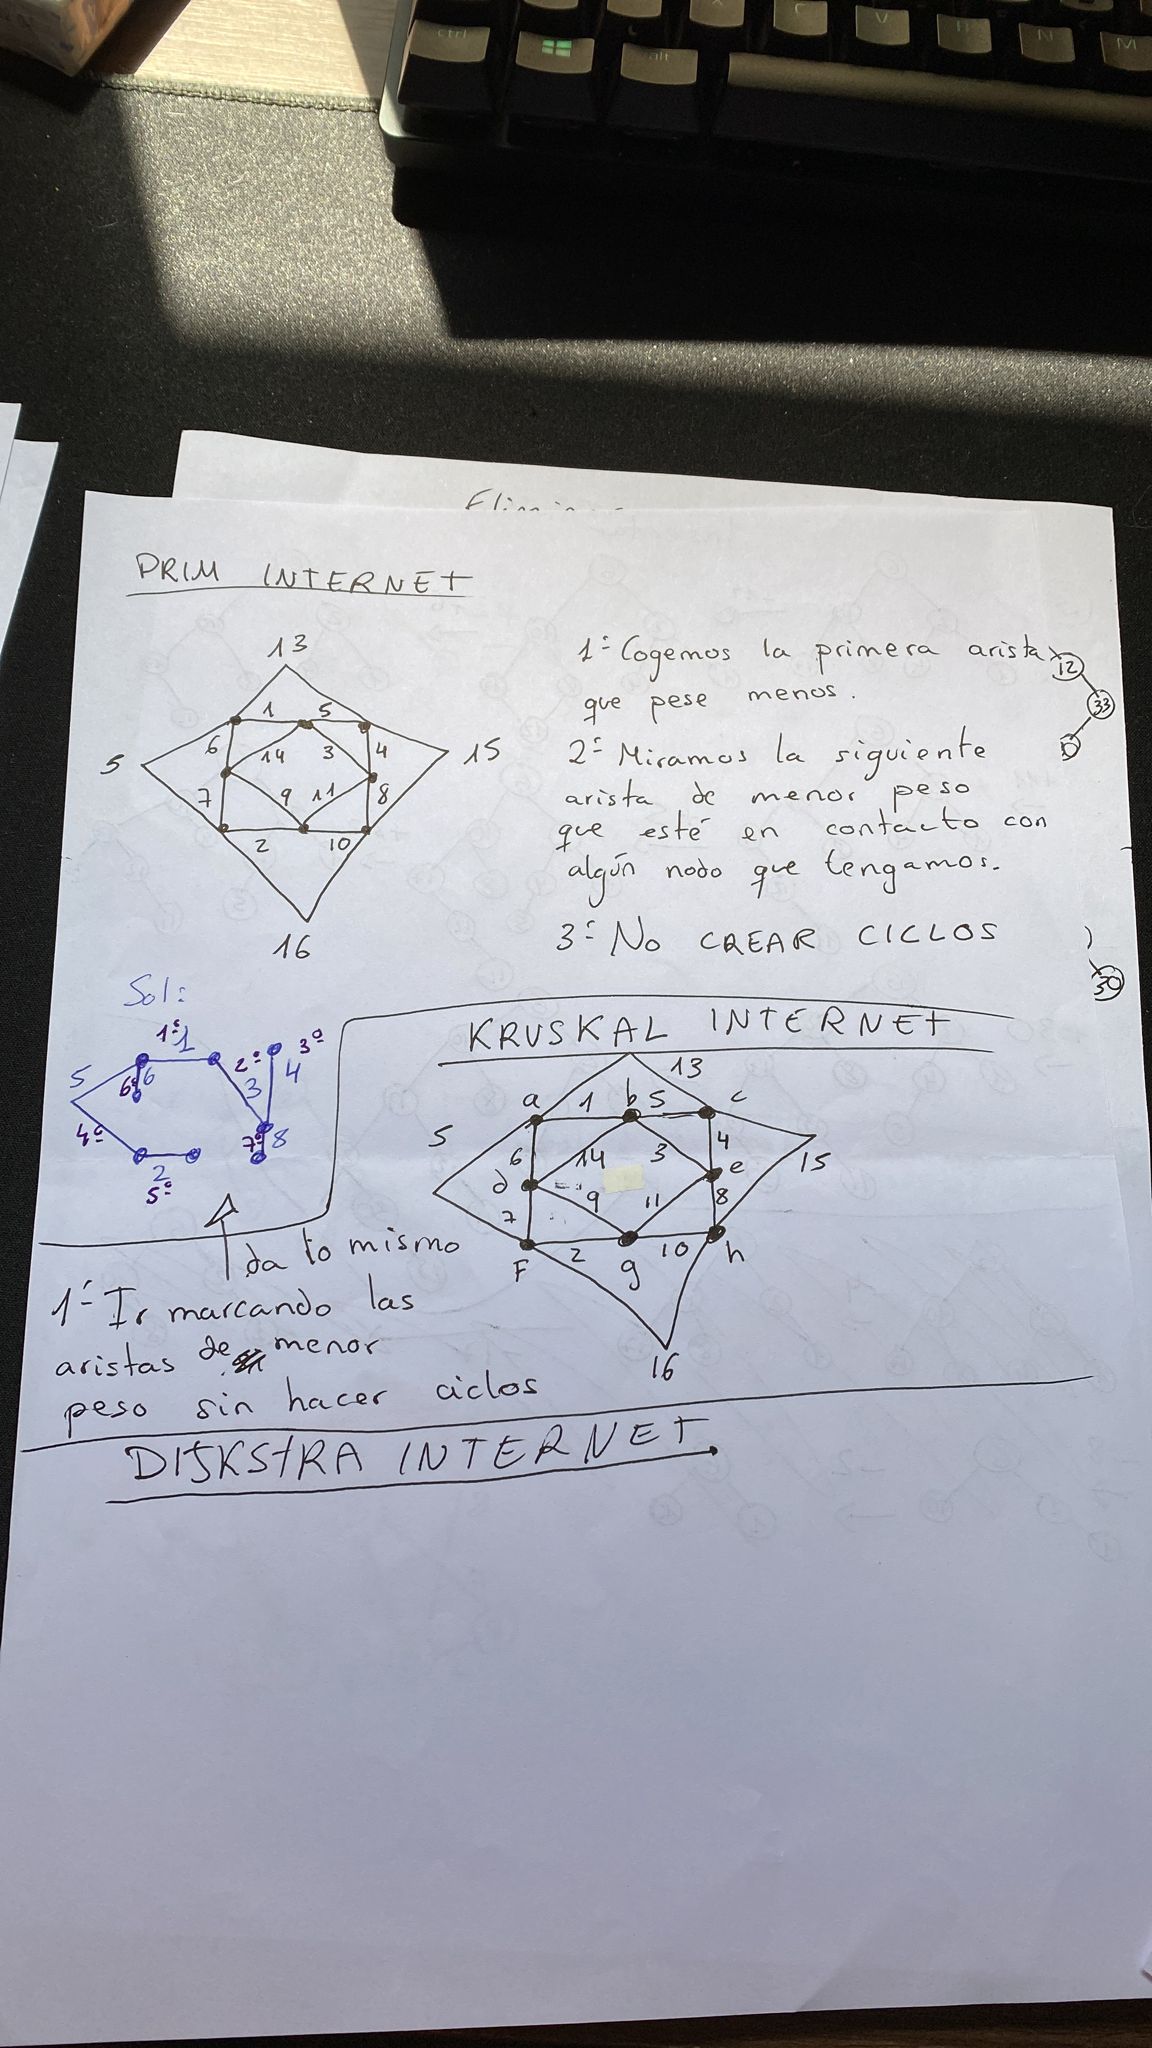 ctrl
alt
C
V
N
M
PRIM INTERNET
13
1 5
6 14 3 4
5 15
7 9 11 8
2 10
16
1º Cogemos la primera arista
que pese menos.
2º Miramos la siguiente
arista de menor peso
que esté en contacto con
algún nodo que tengamos.
3º No CREAR CICLOS
12
33
30
Sol:
1º 1
2º 3 4 3º
5 6º 6
4º 7º 8
2
5º
KRUSKAL INTERNET
13
a 1 b 5 c
5 6 14 3 4
d e 15
7 9 11 8
F 2 g 10 h
16
da lo mismo
1º Ir marcando las
aristas de menor
peso sin hacer ciclos
DIJKSTRA INTERNET.